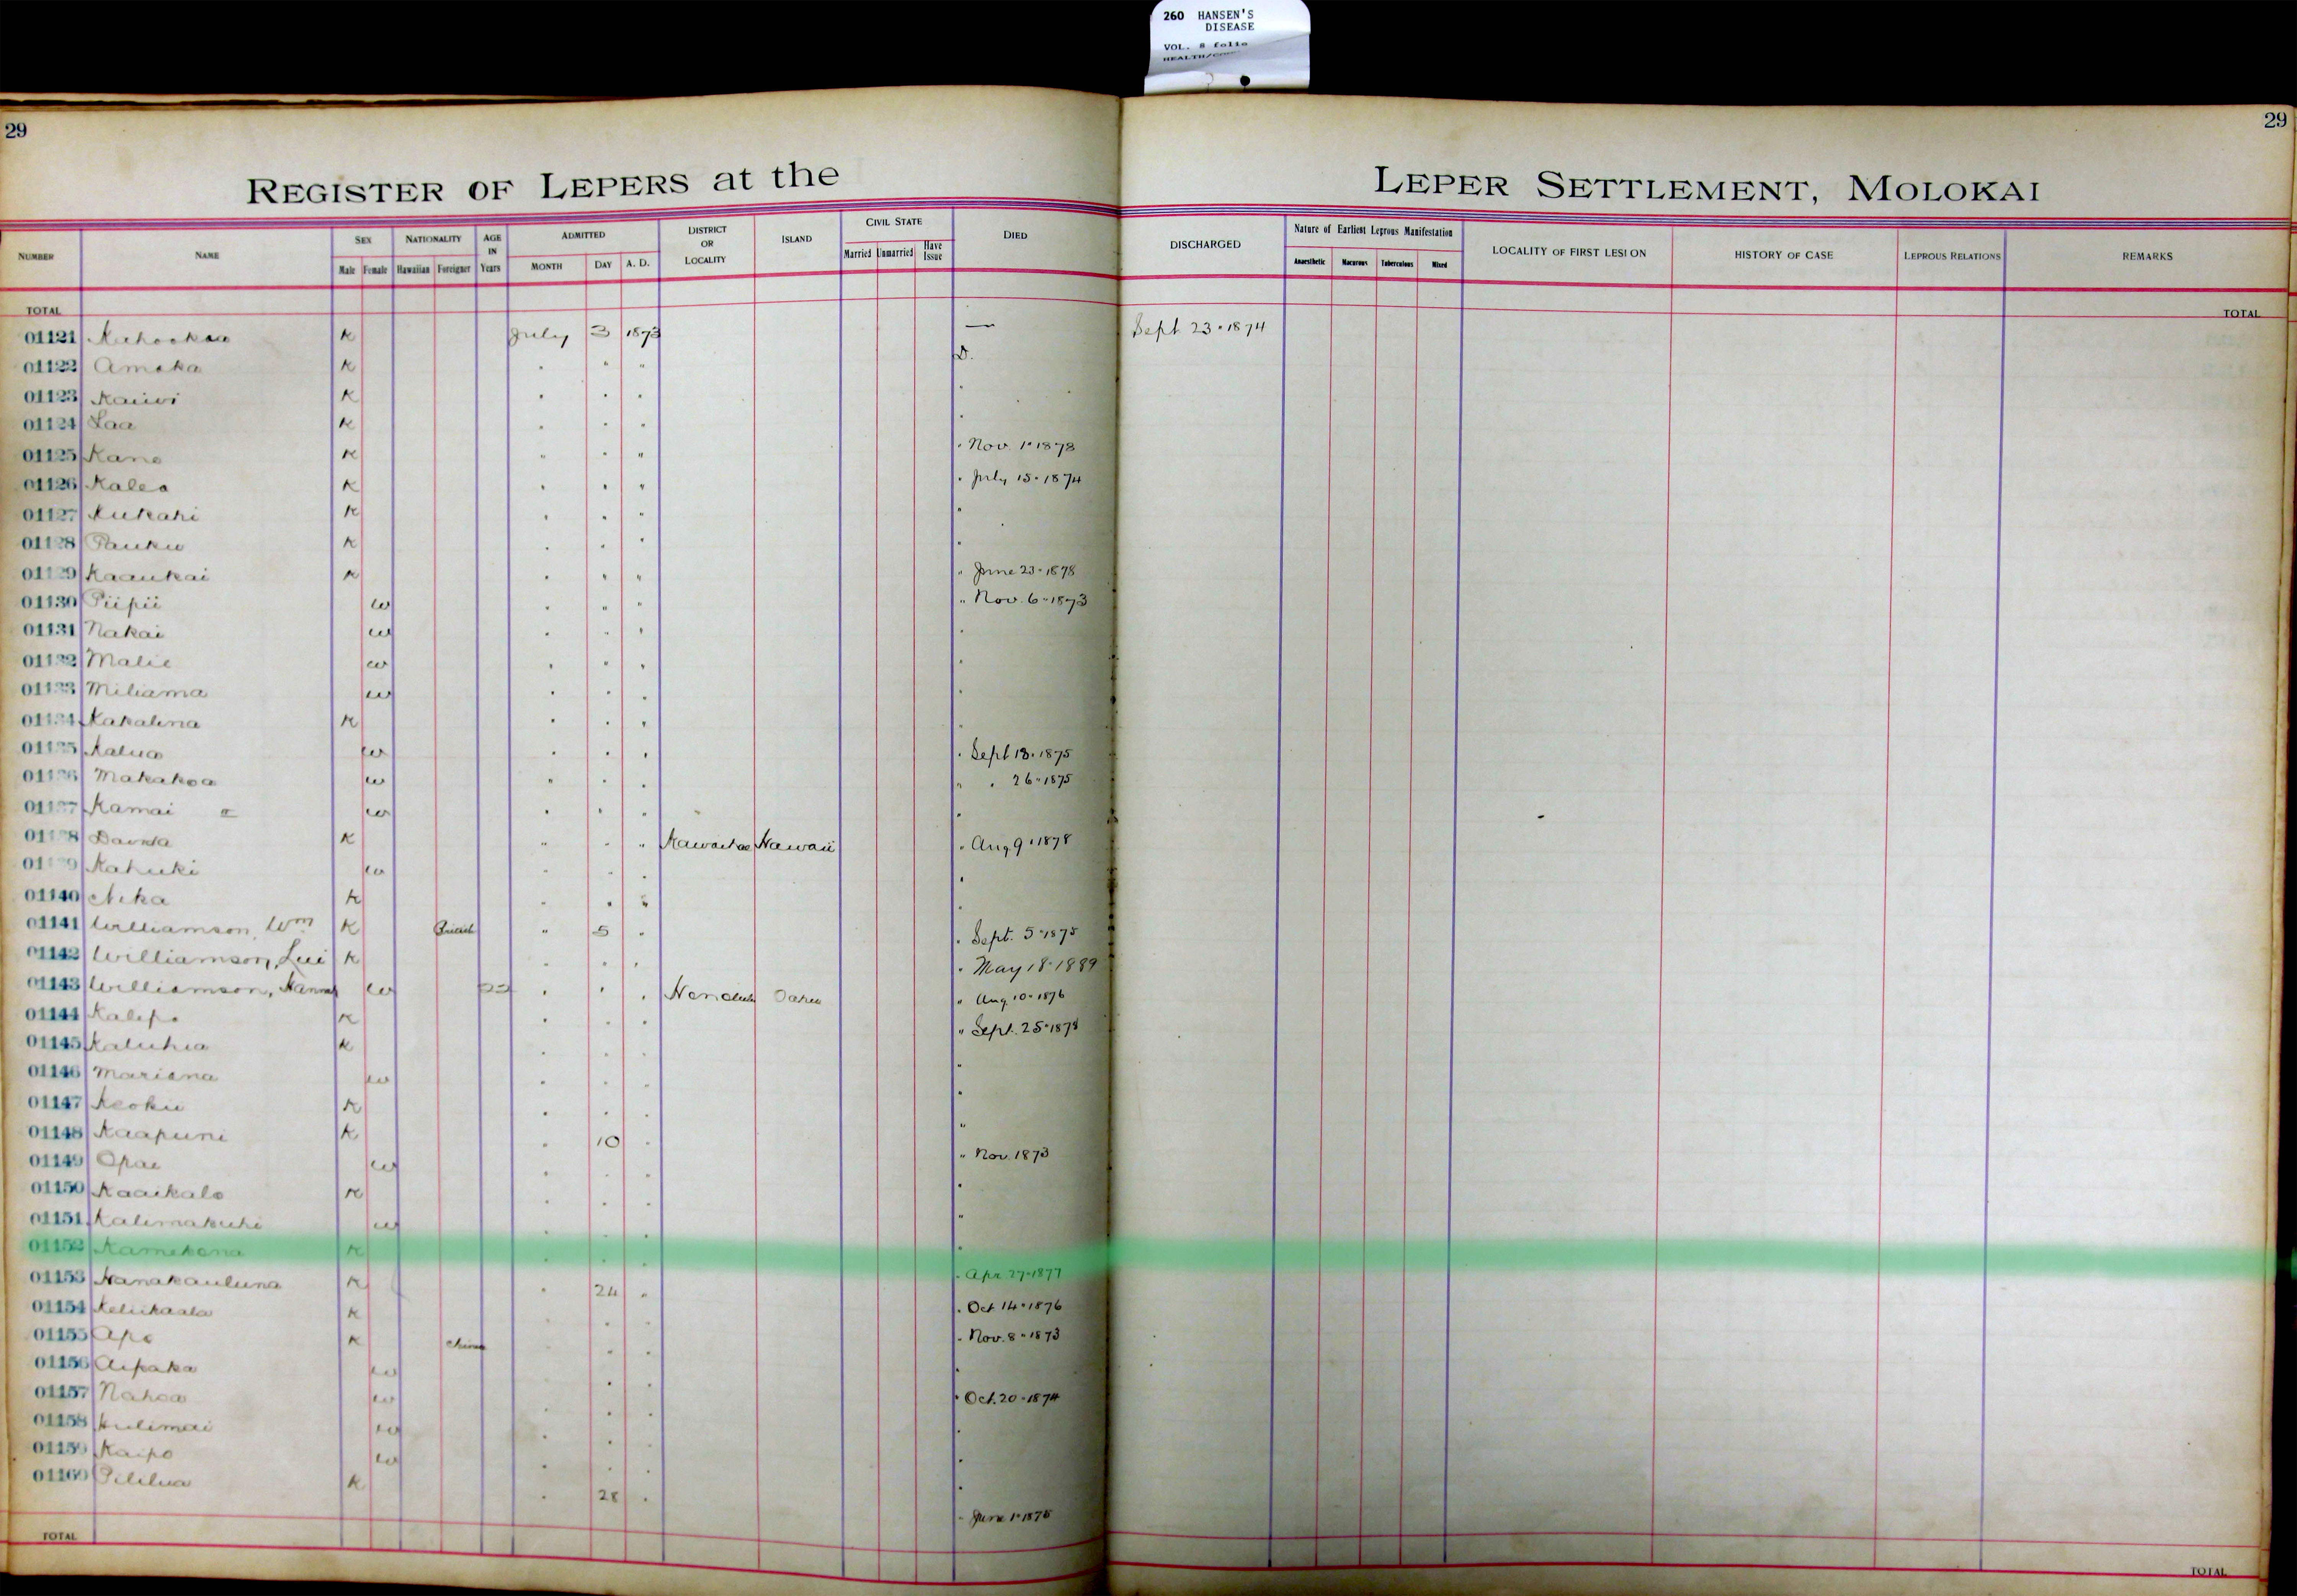 260 HANSEN'S
DISEASE
VOL. 8 folio
29
29
REGISTER OF LEPERS at the LEPER SETTLEMENT, MOLOKAI
NUMBER NAME SEX Male Female NATIONALITY Hawaiian Foreigner AGE IN Years ADMITTED MONTH DAY A. D. DISTRICT OR LOCALITY ISLAND CIVIL STATE Married Unmarried Have Issue DIED DISCHARGED Nature of Earliest Leprous Manifestation Anaesthetic Macurous Tuberculous Mixed LOCALITY OF FIRST LESION HISTORY OF CASE LEPROUS RELATIONS REMARKS
TOTAL TOTAL
01121 K July 3 1873 — Sept 23 · 1874
01122 Amaka K " " " D.
01123 Kaiwi K " " " "
01124 Laa K " " " "
01125 Kane K " " " " Nov. 1 · 1878
01126 Kalea K " " " " July 15 · 1874
01127 Kukahi K " " " "
01128 Pauku K " " " "
01129 Kaaukai K " " " " June 23 · 1878
01130 Piipii w " " " " Nov. 6 · 1873
01131 Nakai w " " " "
01132 Malie w " " " "
01133 Miliama w " " " "
01134 Kakalina K " " " "
01135 Kalua w " " " " Sept 18 · 1875
01136 Makakoa w " " " " " 26 · 1875
01137 Kamai w " " " "
01138 K " " " Kawaihae Hawaii " Aug 9 · 1878
01139 Kahuki w " " " "
01140 Nika K " " " "
01141 Williamson, Wm K British " 5 " " Sept. 5 · 1875
01142 Williamson, Lui K " " " " May 18 · 1889
01143 Williamson, Hannah w " " " Honolulu Oahu " Aug. 10 · 1876
01144 Kalepo K " " " " Sept. 25 · 1878
01145 Kaluhia K " " " "
01146 Mariana w " " " "
01147 Keoku K " " " "
01148 Kaapuni K " 10 " "
01149 Opae w " " " " Nov. 1873
01150 Kaaikalo K " " " "
01151 Kalimakuhi w " " " "
01152 Kamekona K " " " "
01153 Nanakauluna K " 24 " " Apr 27 · 1877
01154 Keliikaala K " " " " Oct 14 · 1876
01155 Apo K China " " " " Nov. 8 · 1873
01156 Aipaka w " " " "
01157 Nahoa w " " " " Oct. 20 · 1874
01158 Hulimai w " " " "
01159 Kaipo w " " " "
01160 Pililua K " 28 " " June 1 · 1875
TOTAL TOTAL